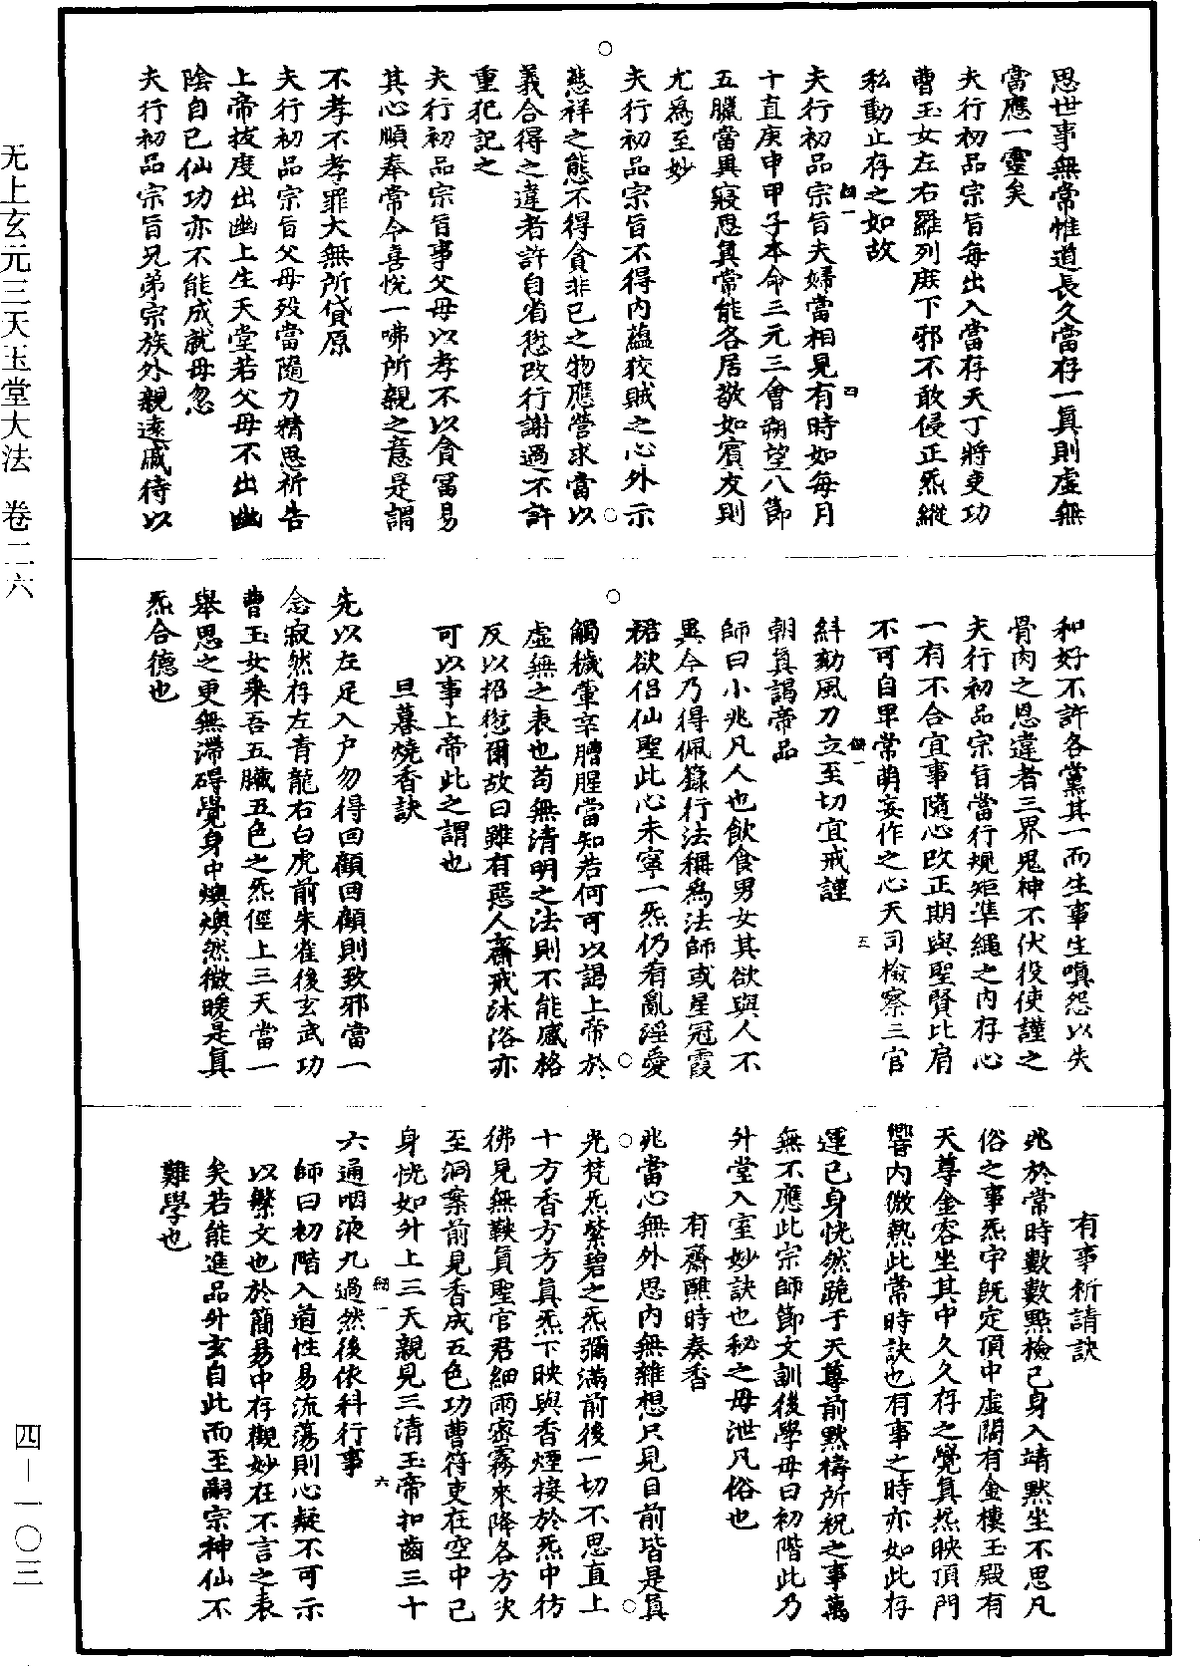 思世事無常惟道長久當存一真則虛無
當應一靈矣
夫行初品宗旨每出入當存天丁將吏功
曹玉女左右羅列庶下邪不敢侵正炁縱
私動止存之如故
夫行初品宗旨夫婦當相見有時如每月
十直庚申甲子本命三元三會朔望八節
五臘當異寢思真常能各居敬如賓友則
尤為至妙
夫行初品宗旨不得內蘊狡賊之心外示
慈祥之態不得貪非己之物應營求當以
義合得之違者許自省愆改行謝過不許
重犯記之
夫行初品宗旨事父母以孝不以貪冨易
其心順奉常令喜悅一咈所親之意是謂
不孝不孝罪大無所貸原
夫行初品宗旨父母歿當隨力精思祈告
上帝拔度出幽上生天堂若父母不出幽
陰自己仙功亦不能成就毋忽
夫行初品宗旨兄弟宗族外親遠戚待以
和好不許各黨其一而生事生嗔怨以失
骨肉之恩違者三界鬼神不伏役使謹之
夫行初品宗旨當行規矩準繩之內存心
一有不合宜事隨心改正期與聖賢比肩
不可自卑常萌妄作之心天司檢察三官
糾劾風刀立至切宜戒謹
朝真謁帝品
師曰小兆凡人也飲食男女其欲與人不
異今乃得佩籙行法稱為法師或星冠霞
裙欲侶仙聖此心未寧一炁仍有亂淫愛
觸穢葷辛膻腥當知若何可以謁上帝於
虛無之表也苟無清明之法則不能感格
反以招愆爾故曰雖有惡人齋戒沐浴亦
可以事上帝此之謂也
旦暮燒香訣
先以左足入戶勿得回顧回顧則致邪當一
念寂然存左青龍右白虎前朱雀後玄武功
曹玉女乘吾五臟五色之炁徑上三天當一
舉思之更無滯碍覺身中燠燠然微暖是真
炁合德也
有事祈請訣
兆於常時數數點檢己身入靖默坐不思凡
俗之事炁宇既定頂中虛闊有金樓玉殿有
天尊金容坐其中久久存之覺真炁映頂門
響內微熱此常時訣也有事之時亦如此存
運己身恍然跪于天尊前默禱所祝之事萬
無不應此宗師節文訓後學毋曰初階此乃
升堂入室妙訣也秘之毋泄凡俗也
有齋醮時奏香
兆當心無外思內無雜想只見目前皆是真
光梵炁紫碧之炁彌滿前後一切不思直上
十方香方方真炁下映與香煙接於炁中彷
彿見無鞅真聖官君細雨密霧來降各方次
至洞案前見香成五色功曹符吏在空中己
身恍如升上三天親見三清玉帝扣齒三十
六通咽液九過然後依科行事
師曰初階入道性易流蕩則心疑不可示
以繁文也於簡易中存觀妙在不言之表
矣若能進品升玄自此而至嗣宗神仙不
難學也
五
六
四
无上玄元三天玉堂大法 卷二六
四—一〇三